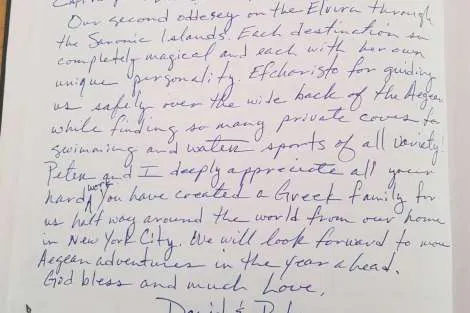 Our second oddesey on the Elvira through
the Saronic Islands. Each destination so
completely magical and each with her own
unique personality. Efcharisto for guiding
us safely over the wide back of the Aegean
while finding so many private coves to
swimming and water sports of all variety.
Peter and I deeply appreciate all your
hard work. You have created a Greek family for
us half way around the world from our home
in New York City. We will look forward to more
Aegean adventures in the year ahead.
God bless and much love,
David &